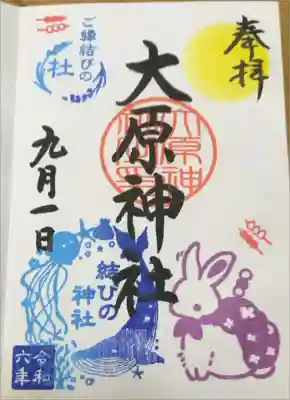 奉拝
大原神社
九月一日
ご縁結びの
社
結びの
神社
令和
六年